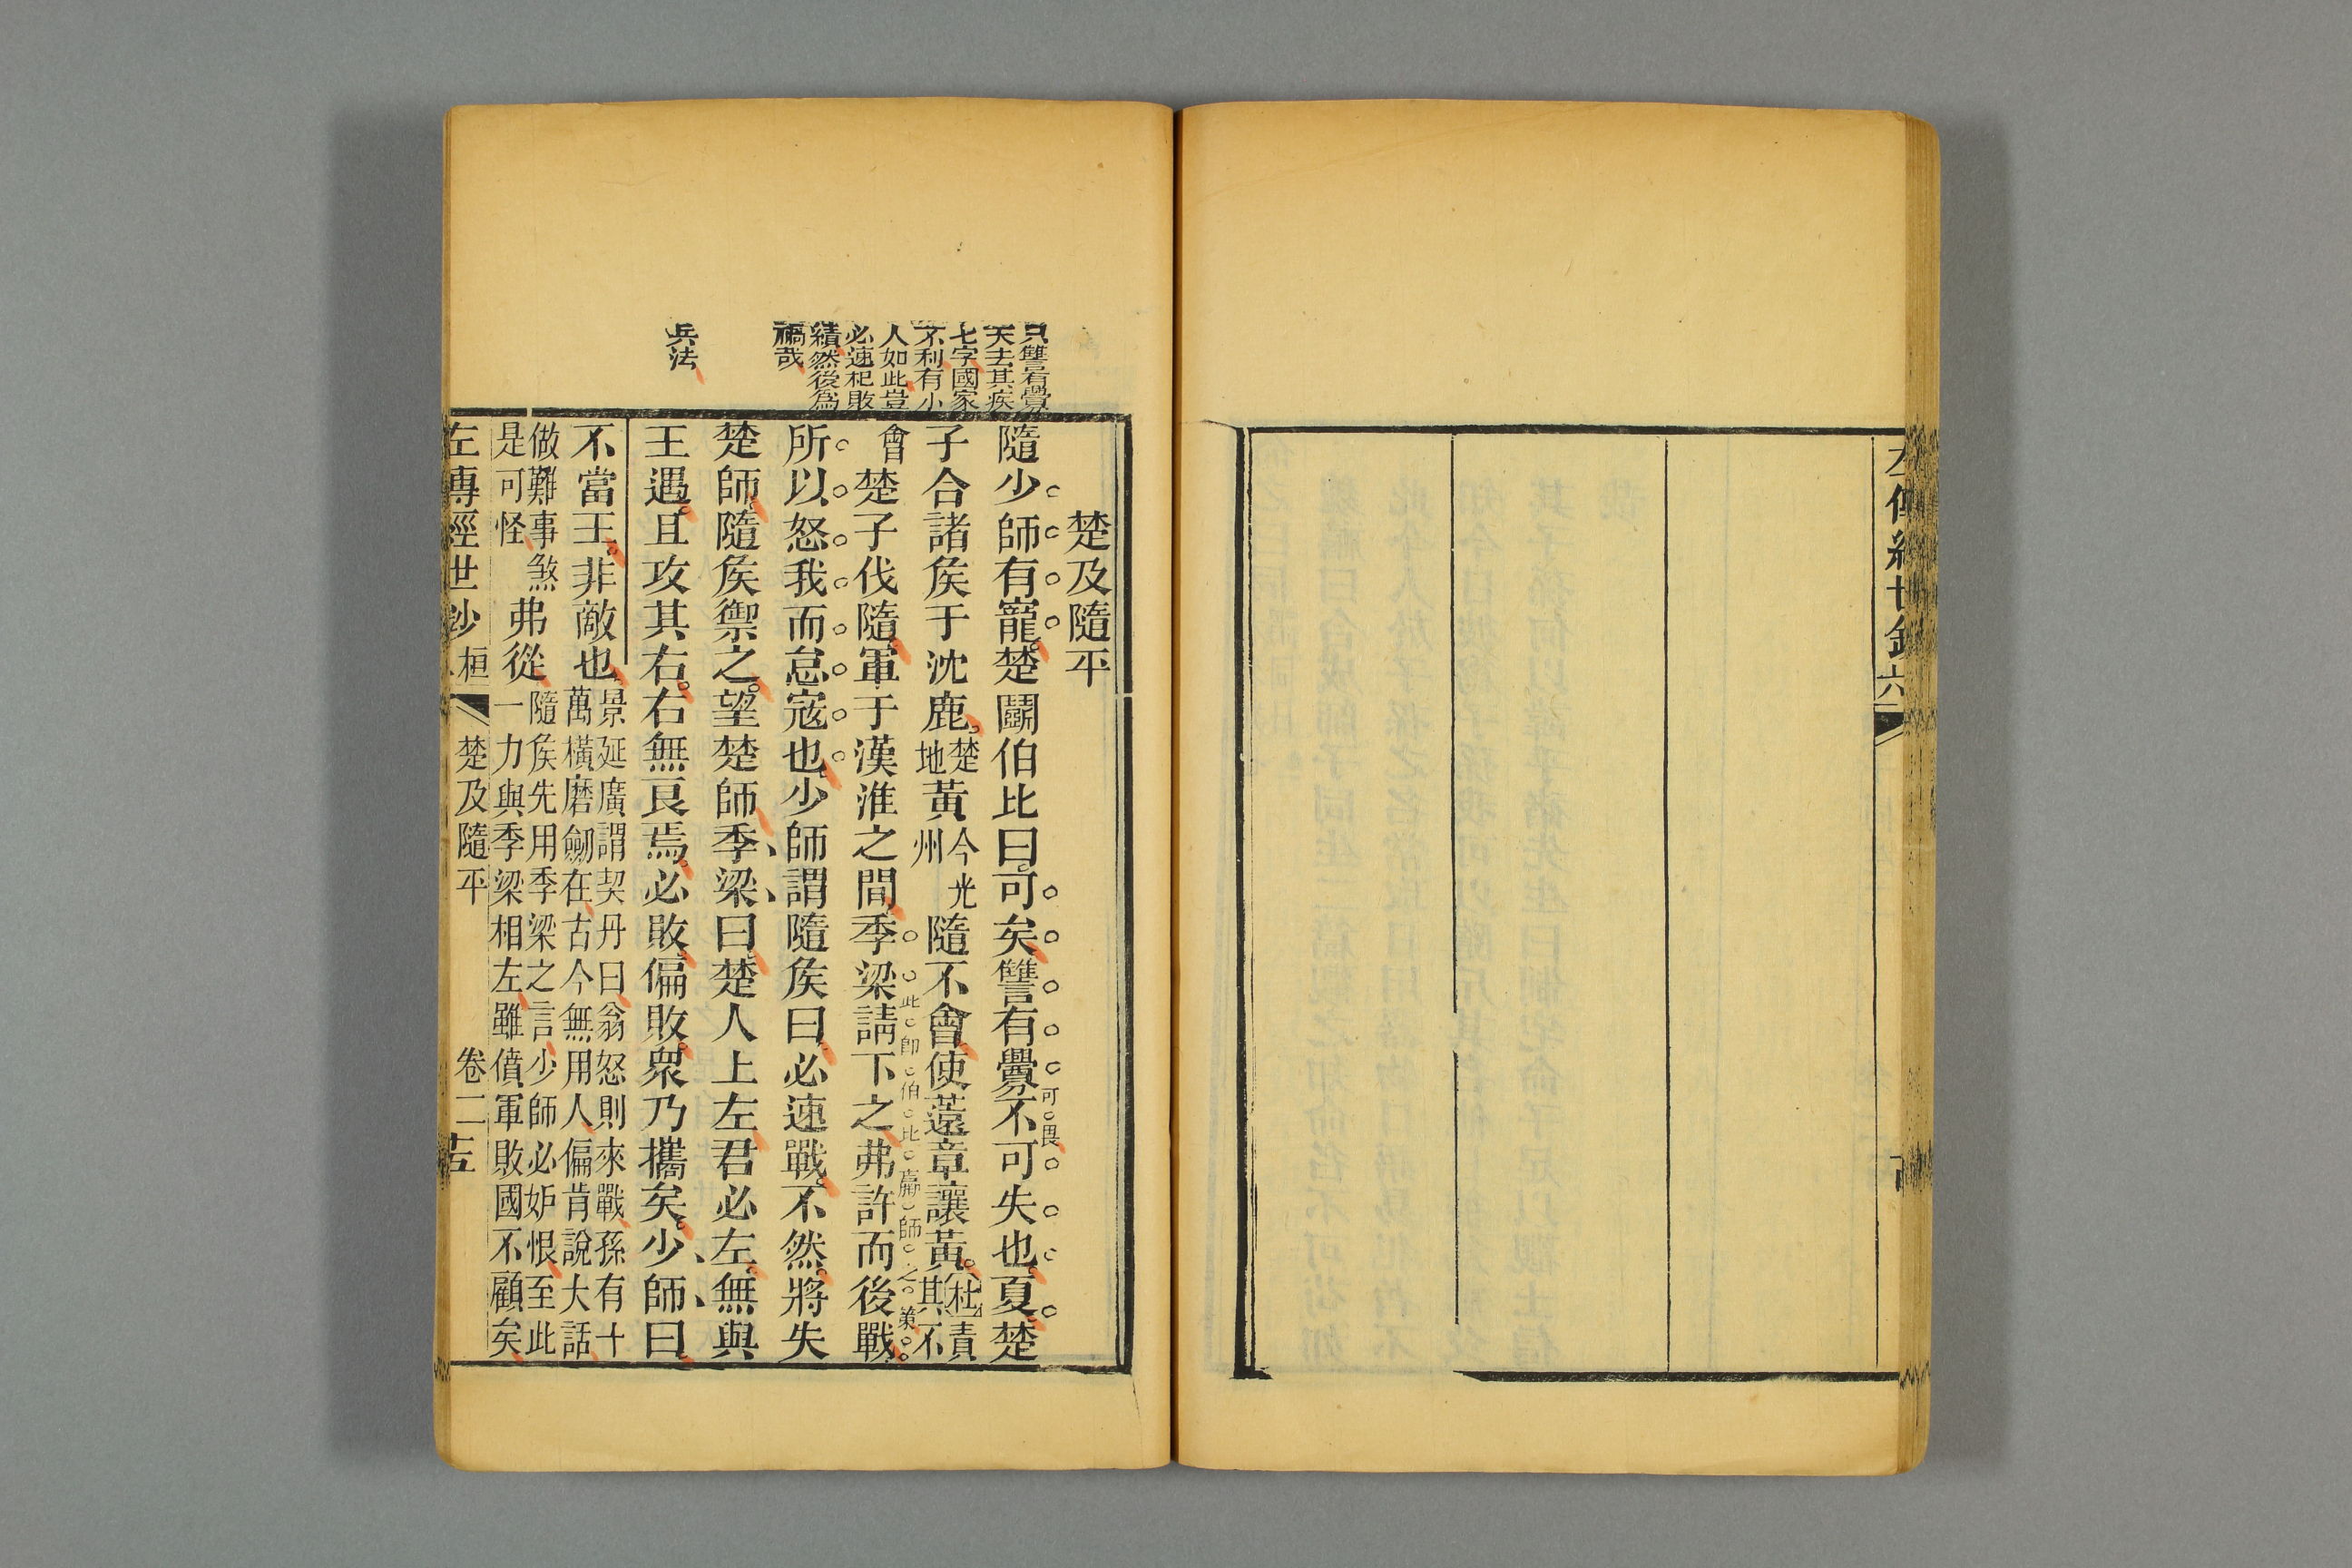 左傳經世鈔
六
只讐有釁
天去其疾
七字國家
不利有小
人如此豈
必速祀敗
績然後爲
禍哉
兵法
楚及隨平
隨少師有寵楚鬬伯比曰可矣讐有釁可畏不可失也夏楚
子合諸矦于沈鹿楚地黃今光州隨不會使薳章讓黃杜責其不
會楚子伐隨軍于漢淮之間季梁請下之此卽伯比羸師之弟弗許而後戰
所以怒我而怠寇也少師謂隨矦曰必速戰不然將失
楚師隨矦禦之望楚師季梁曰楚人上左君必左無與
王遇且攻其右右無良焉必敗偏敗衆乃攜矣少師曰
不當王非敵也景延廣謂契丹曰翁怒則來戰孫有十萬橫磨劒在古今無用人偏肯說大話
做難事煞是可怪弗從隨矦先用季梁之言少師必妒恨至此一力與季梁相左雖僨軍敗國不顧矣
左傳經世鈔 桓 楚及隨平 卷二 十五